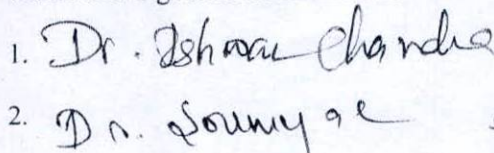 1. Dr. Ishwar Chandra
2. Dr. Soumya